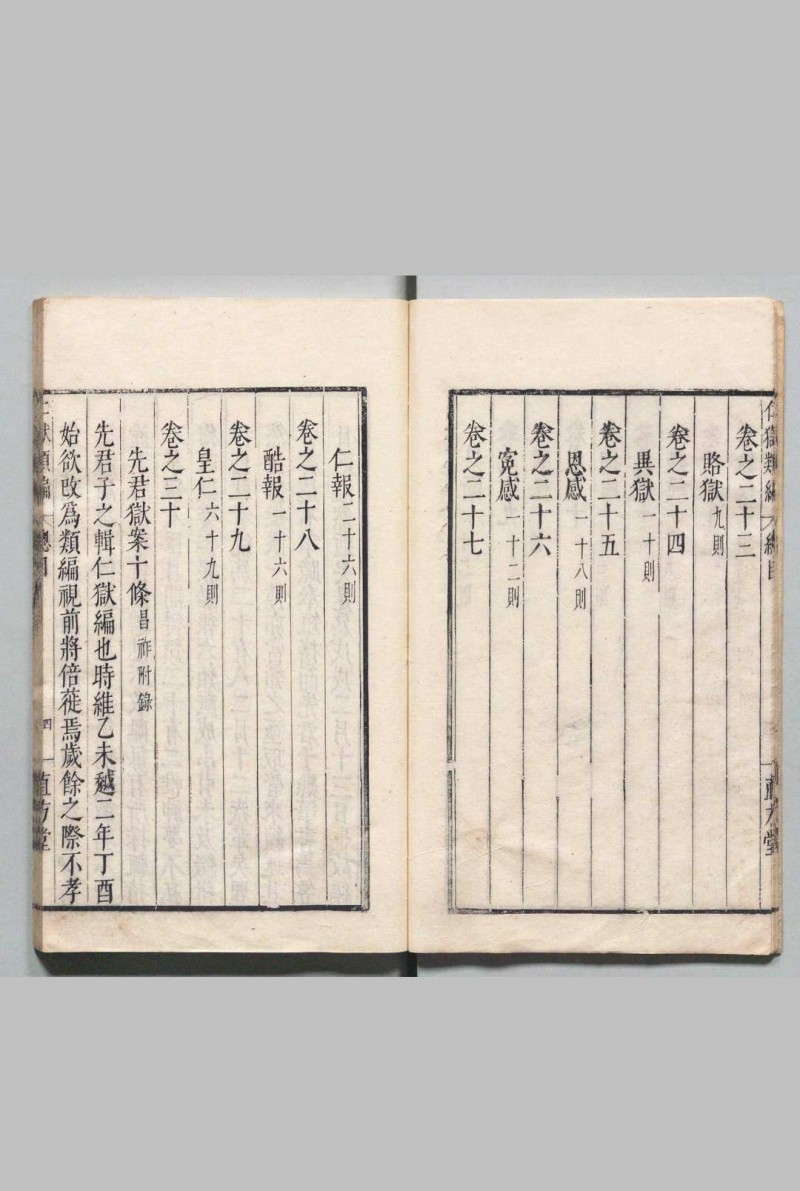 仁獄類編 總目
卷之二十三
賂獄九則
卷之二十四
異獄一十則
卷之二十五
恩感一十八則
卷之二十六
寃感一十二則
卷之二十七
直方堂
仁報二十六則
卷之二十八
酷報一十六則
卷之二十九
皇仁六十九則
卷之三十
先君獄案十條昌祚附錄
先君子之輯仁獄編也時維乙未越二年丁酉
始欲改爲類編視前將倍蓰焉歲餘之際不孝
仁獄類編 總目 四 直方堂